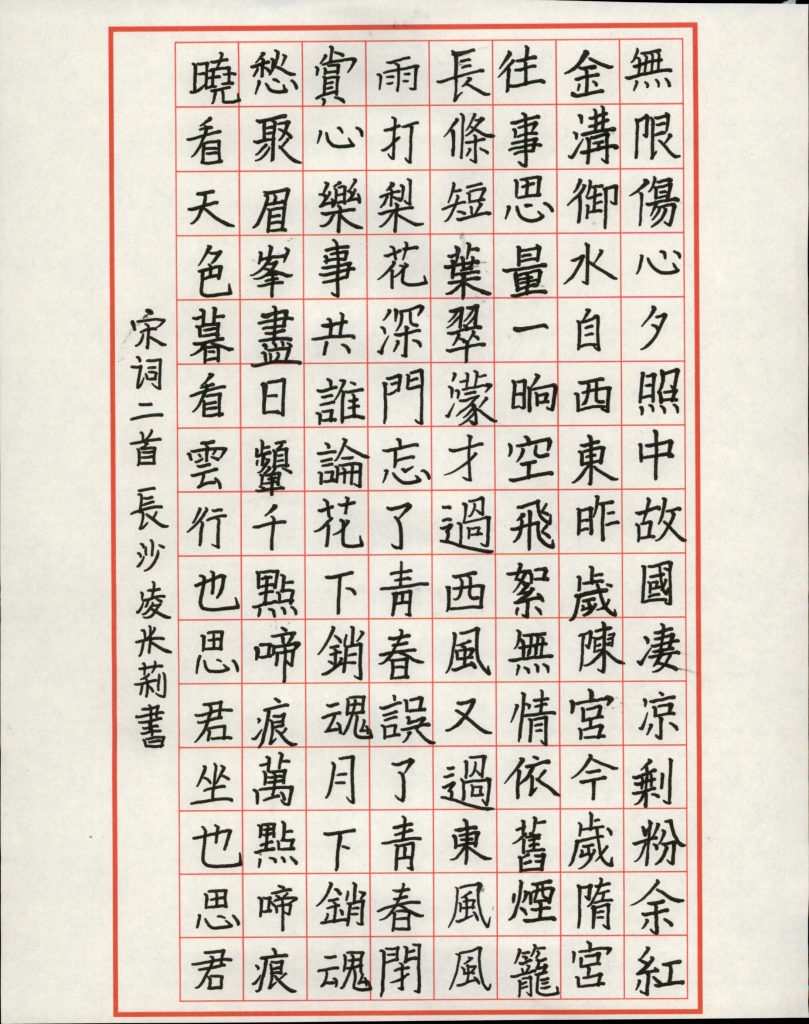 無限傷心夕照中故國凄凉剩粉余紅
金溝御水自西東昨歲陳宮今歲隋宮
往事思量一晌空飛絮無情依舊煙籠
長條短葉翠濛才過西風又過東風風
雨打梨花深門忘了青春誤了青春閉
賞心樂事共誰論花下銷魂月下銷魂
愁聚眉峯盡日顰千點啼痕萬點啼痕
曉看天色暮看雲行也思君坐也思君
宋词二首長沙凌米莉書